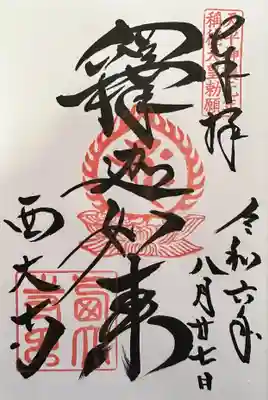 稱徳天皇勅願
奉拝
令和六年
八月廿七日
釋迦如来
西大寺